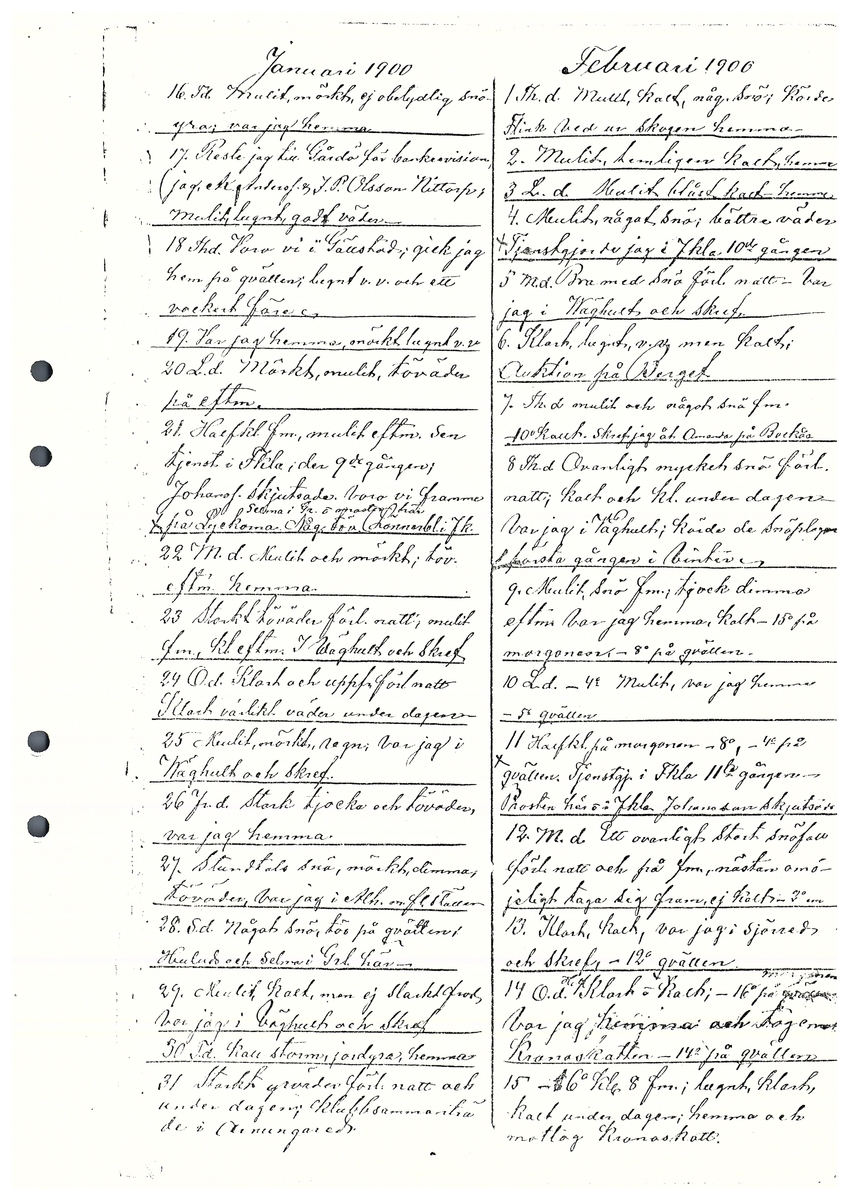 Januari 1900
16. Td. Mulit, mörkt, ej obetydlig snö-
yra; var jag hemma
17. Reste jag till Gårdö för bankrevision,
(jag, ek Anders. & J. P. Olsson Nittorp;
Mulit, lugnt, godt väder
18 Thd. Voro vi i Gällstad; gick jag
hem på qvällen; lugnt v. v. och ett
vackert före
19. Var jag hemma, mörkt lugnt v. v
20 L.d. Mörkt, mulit, töväder
på eftm.
21. Halfkl. fm., mulit eftm. Sön
tjenst. i Fkla; der 9de gången;
Johans. skjutsade. Voro vi framme
Selma i Gr.
på Lyckorna. Någ. töv. i Fk.
22 M.d. Mulit och mörkt; töv.
eftm. hemma.
23 Starkt töväder förl. natt; mulit
fm., kl. eftm. I Wäghult och skref
24 O.d. Klart och uppfr. förl. natt
Klart vårlikt väder under dagen
25 Mulit, mörkt, regn; var jag i
Wäghult och skref.
26 Fr.d. Stark tjocka och töväder,
var jag hemma.
27. Stundtals snö, mörkt, dimma,
töväder, var jag i
28. S.d. Något snö, töv på qvällen;
Hulda och Selma i Grl. här
29. Mulit, kalt, men ej starkt frost,
Var jag i Väghult och skref
30 Td. Kall storm, jordyra, hemma
31 Starkt yrväder förl. natt och
under dagen; klubbsammanträ
de i Arnungared
Februari 1900
1 Th.d. Mulit, kalt, någ. snö; körde
Flink ved ur skogen hemma
2. Mulit, temligen kalt, hemma
3 L.d. Mulit blåst kalt hemma
4. Mulit, något snö; bättre väder
x Tjenstgjorde jag i Fkla 10de gången
5 M.d. Bra med snö förl. natt - Var
jag i Wäghult och skref
6. Klart, lugnt, v. v. men kalt;
Auktion på Berget
7. Th.d mulit och något snö fm.
-10° kallt. skref jag åt Amanda på Bockås
8 Th.d Ovanligt mycket snö förl.
natt; kalt och kl. under dagen
Var jag i Väghult; körde de snöplogen
första gången i vinter
9. Mulit, snö fm.; tjock dimma
eftm. Var jag hemma, kalt - 15° på
morgonen, - 8° på qvällen.
10 L.d. - 4° Mulit, var jag hemma
- 5° qvällen
11 Halfkl. på morgonen - 8°, - 4° på
x qvällen. Tjenstgj. i Fkla 11te gången
Prosten här o i Fkla Johansson skjutsade
12. M.d Ett ovanligt stort snöfall
förl. natt och på fm., nästan omö-
jeligt taga sig fram, ej kalt - 3° em
13. Klart, kalt, var jag i Sjöared
och skref, - 12° qvällen.
14 O.d. Klart o kalt; - 16° på morgonen
Var jag hemma och tog emot
Kronoskatten - 14° på qvällen
15 - 16° Kl. 8 fm.; lugnt, klart,
kalt under dagen; hemma och
mottog Kronoskatt.